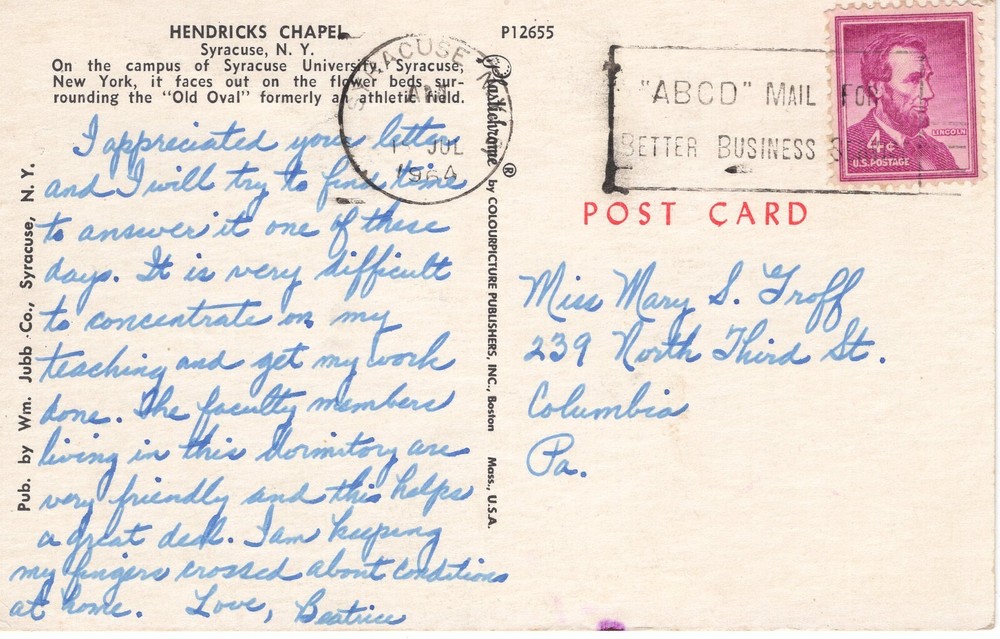 HENDRICKS CHAPEL
Syracuse, N. Y.
On the campus of Syracuse University, Syracuse,
New York, it faces out on the flower beds sur-
rounding the "Old Oval" formerly an athletic field.
P12655
I appreciated your letter
and I will try to find time
to answer it one of these
days. It is very difficult
to concentrate on my
teaching and get my work
done. The faculty members
living in this dormitory are
very friendly and this helps
a great deal. I am keeping
my fingers crossed about conditions
at home. Love, Beatrice
Pub. by Wm. Jubb Co., Syracuse, N. Y.
Plastichrome ® by COLOURPICTURE PUBLISHERS, INC., Boston Mass., U.S.A.
SYRACUSE N
AM
JUL
1964
"ABCD" MAIL FOR
BETTER BUSINESS
LINCOLN
4¢
U.S. POSTAGE
POST CARD
Miss Mary S. Groff
239 North Third St.
Columbia
Pa.